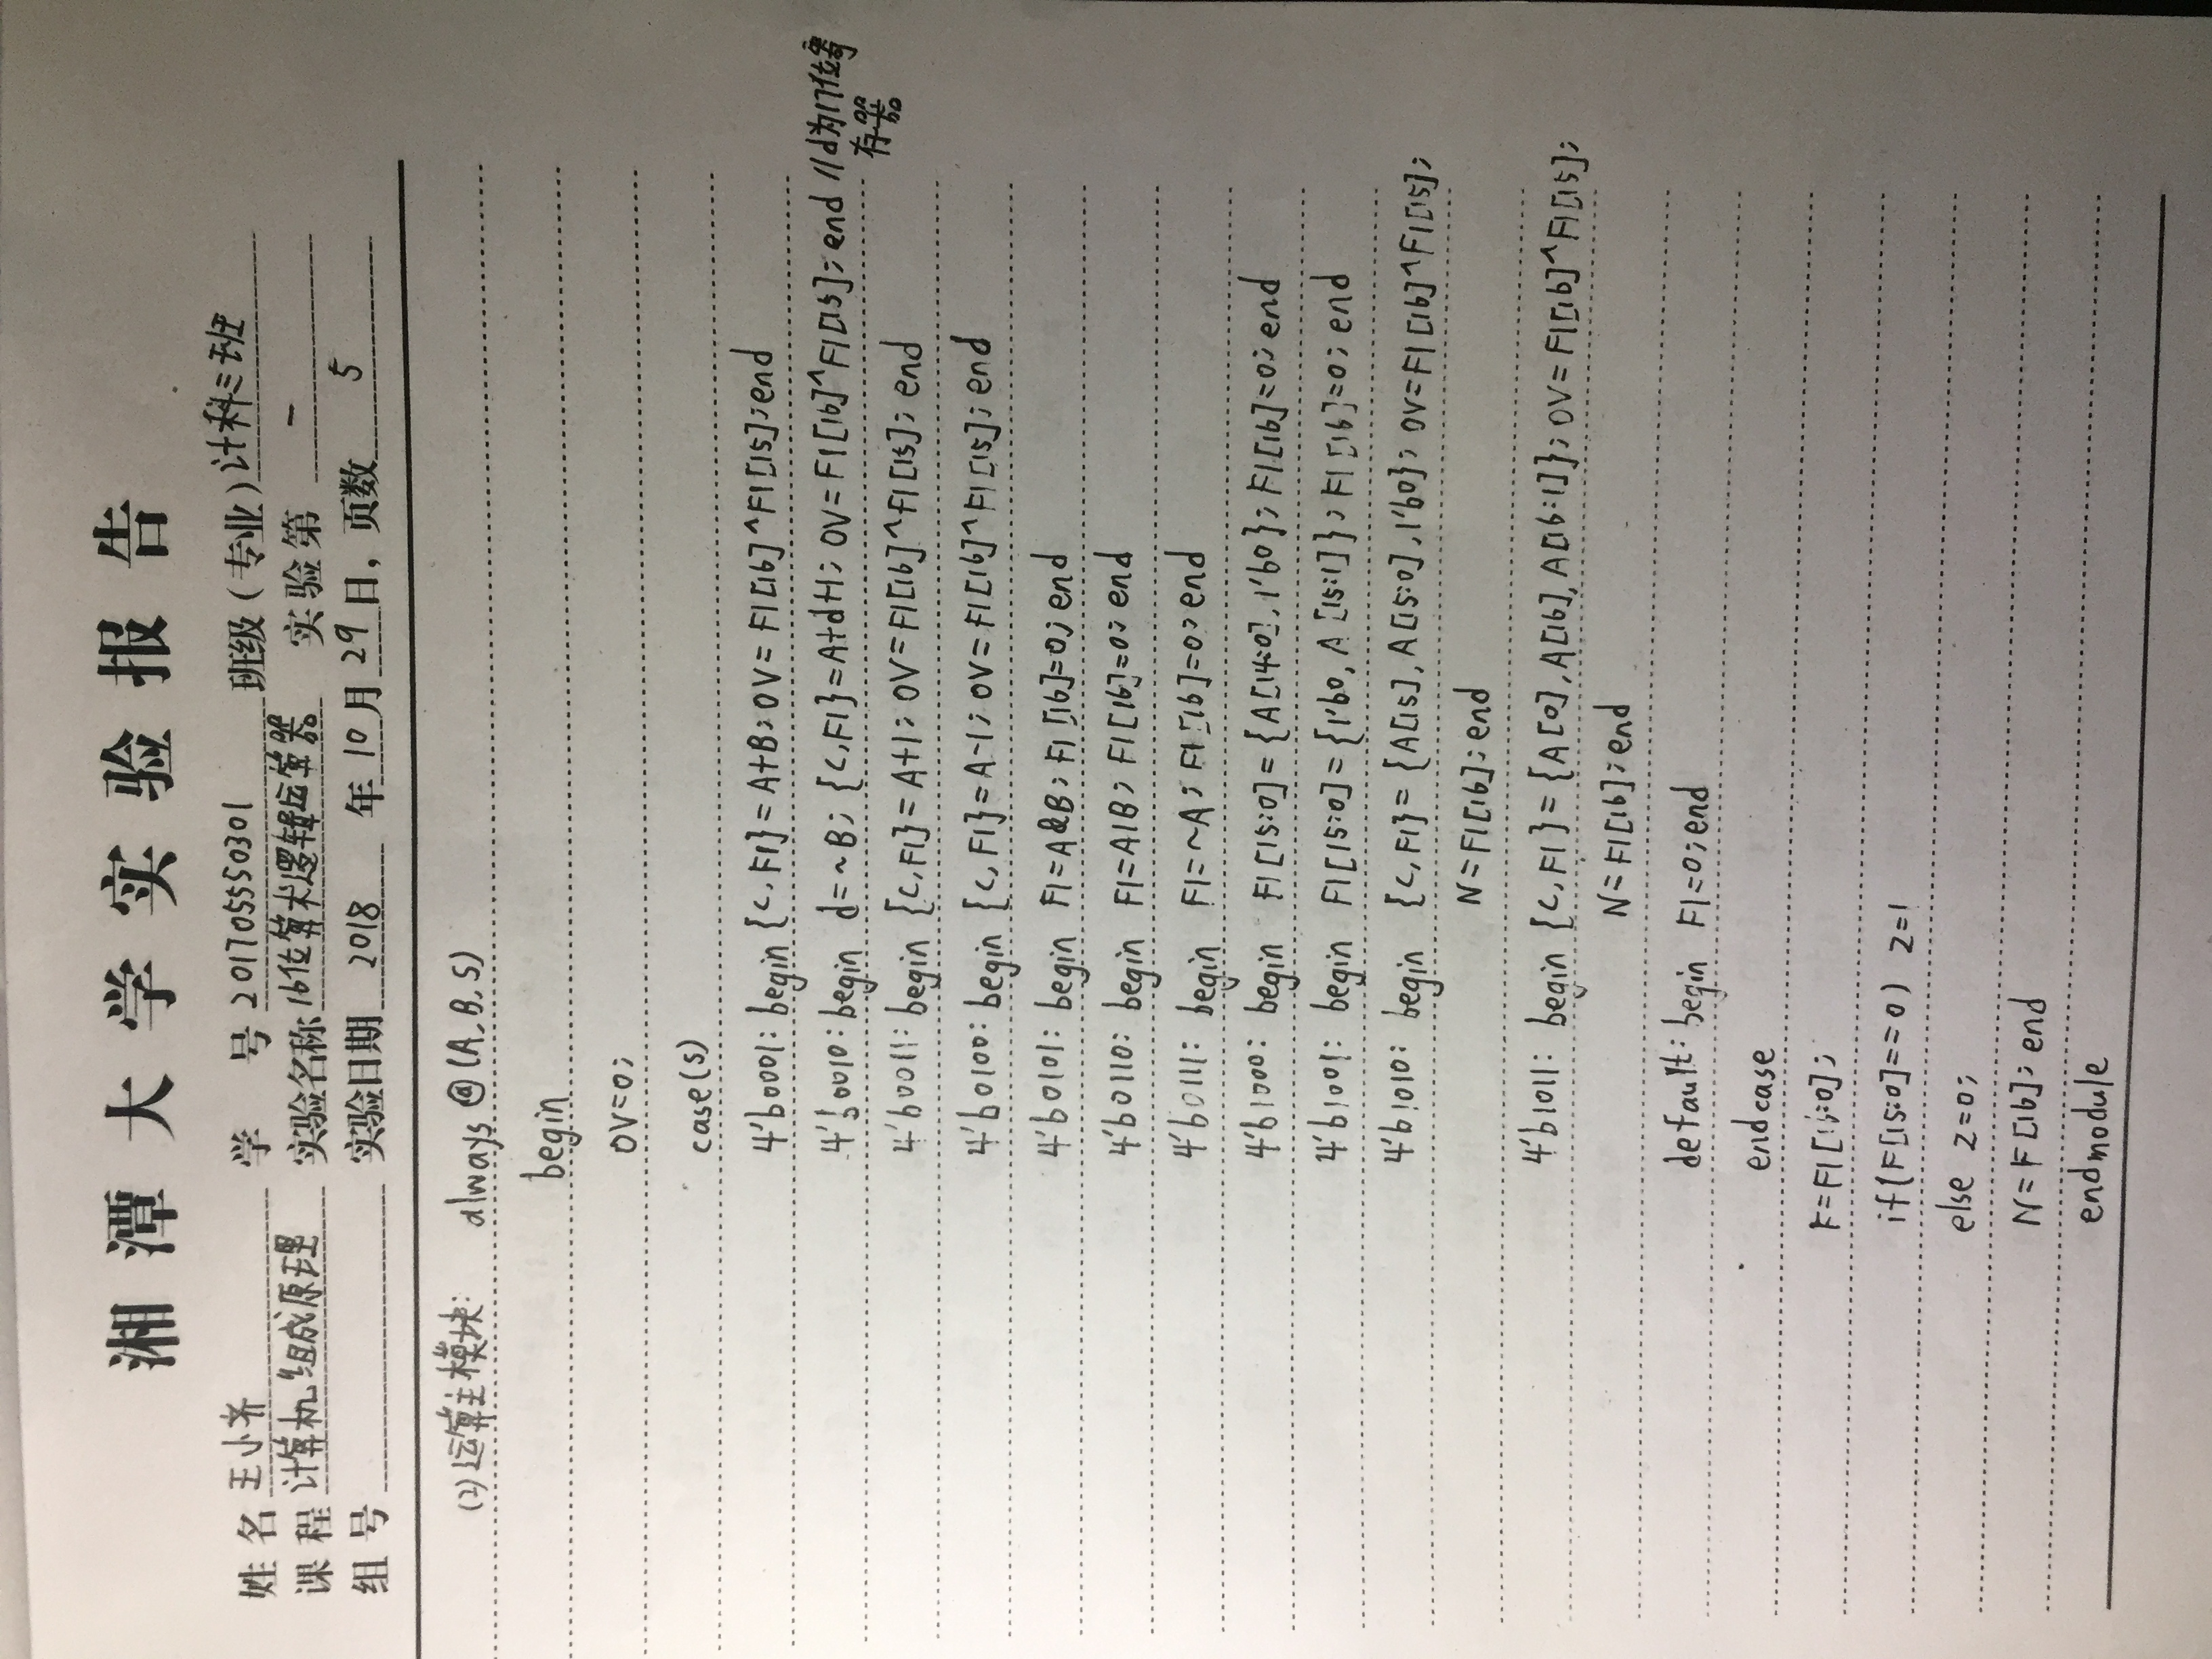 湘潭大学实验报告
姓名 王小齐 学号 201705550301 班级(专业) 计科三班
课程 计算机组成原理 实验名称 16位算术逻辑运算器 实验第 一
组号 实验日期 2018 年 10 月 29 日, 页数 5
(2)运算主模块: always @(A,B,S)
begin
OV=0;
case(S)
4'b0001: begin {C,F1}=A+B; OV=F1[16]^F1[15]; end
4'b0010: begin d=~B; {C,F1}=A+d+1; OV=F1[16]^F1[15]; end //d为17位寄
存器
4'b0011: begin {C,F1}=A+1; OV=F1[16]^F1[15]; end
4'b0100: begin {C,F1}=A-1; OV=F1[16]^F1[15]; end
4'b0101: begin F1=A&B; F1[16]=0; end
4'b0110: begin F1=A|B; F1[16]=0; end
4'b0111: begin F1=~A; F1[16]=0; end
4'b1000: begin F1[15:0]={A[14:0],1'b0}; F1[16]=0; end
4'b1001: begin F1[15:0]={1'b0,A[15:1]}; F1[16]=0; end
4'b1010: begin {C,F1}={A[15],A[15:0],1'b0}; OV=F1[16]^F1[15];
N=F1[16]; end
4'b1011: begin {C,F1}={A[0],A[16],A[16:1]}; OV=F1[16]^F1[15];
N=F1[16]; end
default: begin F1=0; end
endcase
F=F1[15:0];
if(F[15:0]==0) Z=1
else Z=0;
N=F[16]; end
endmodule